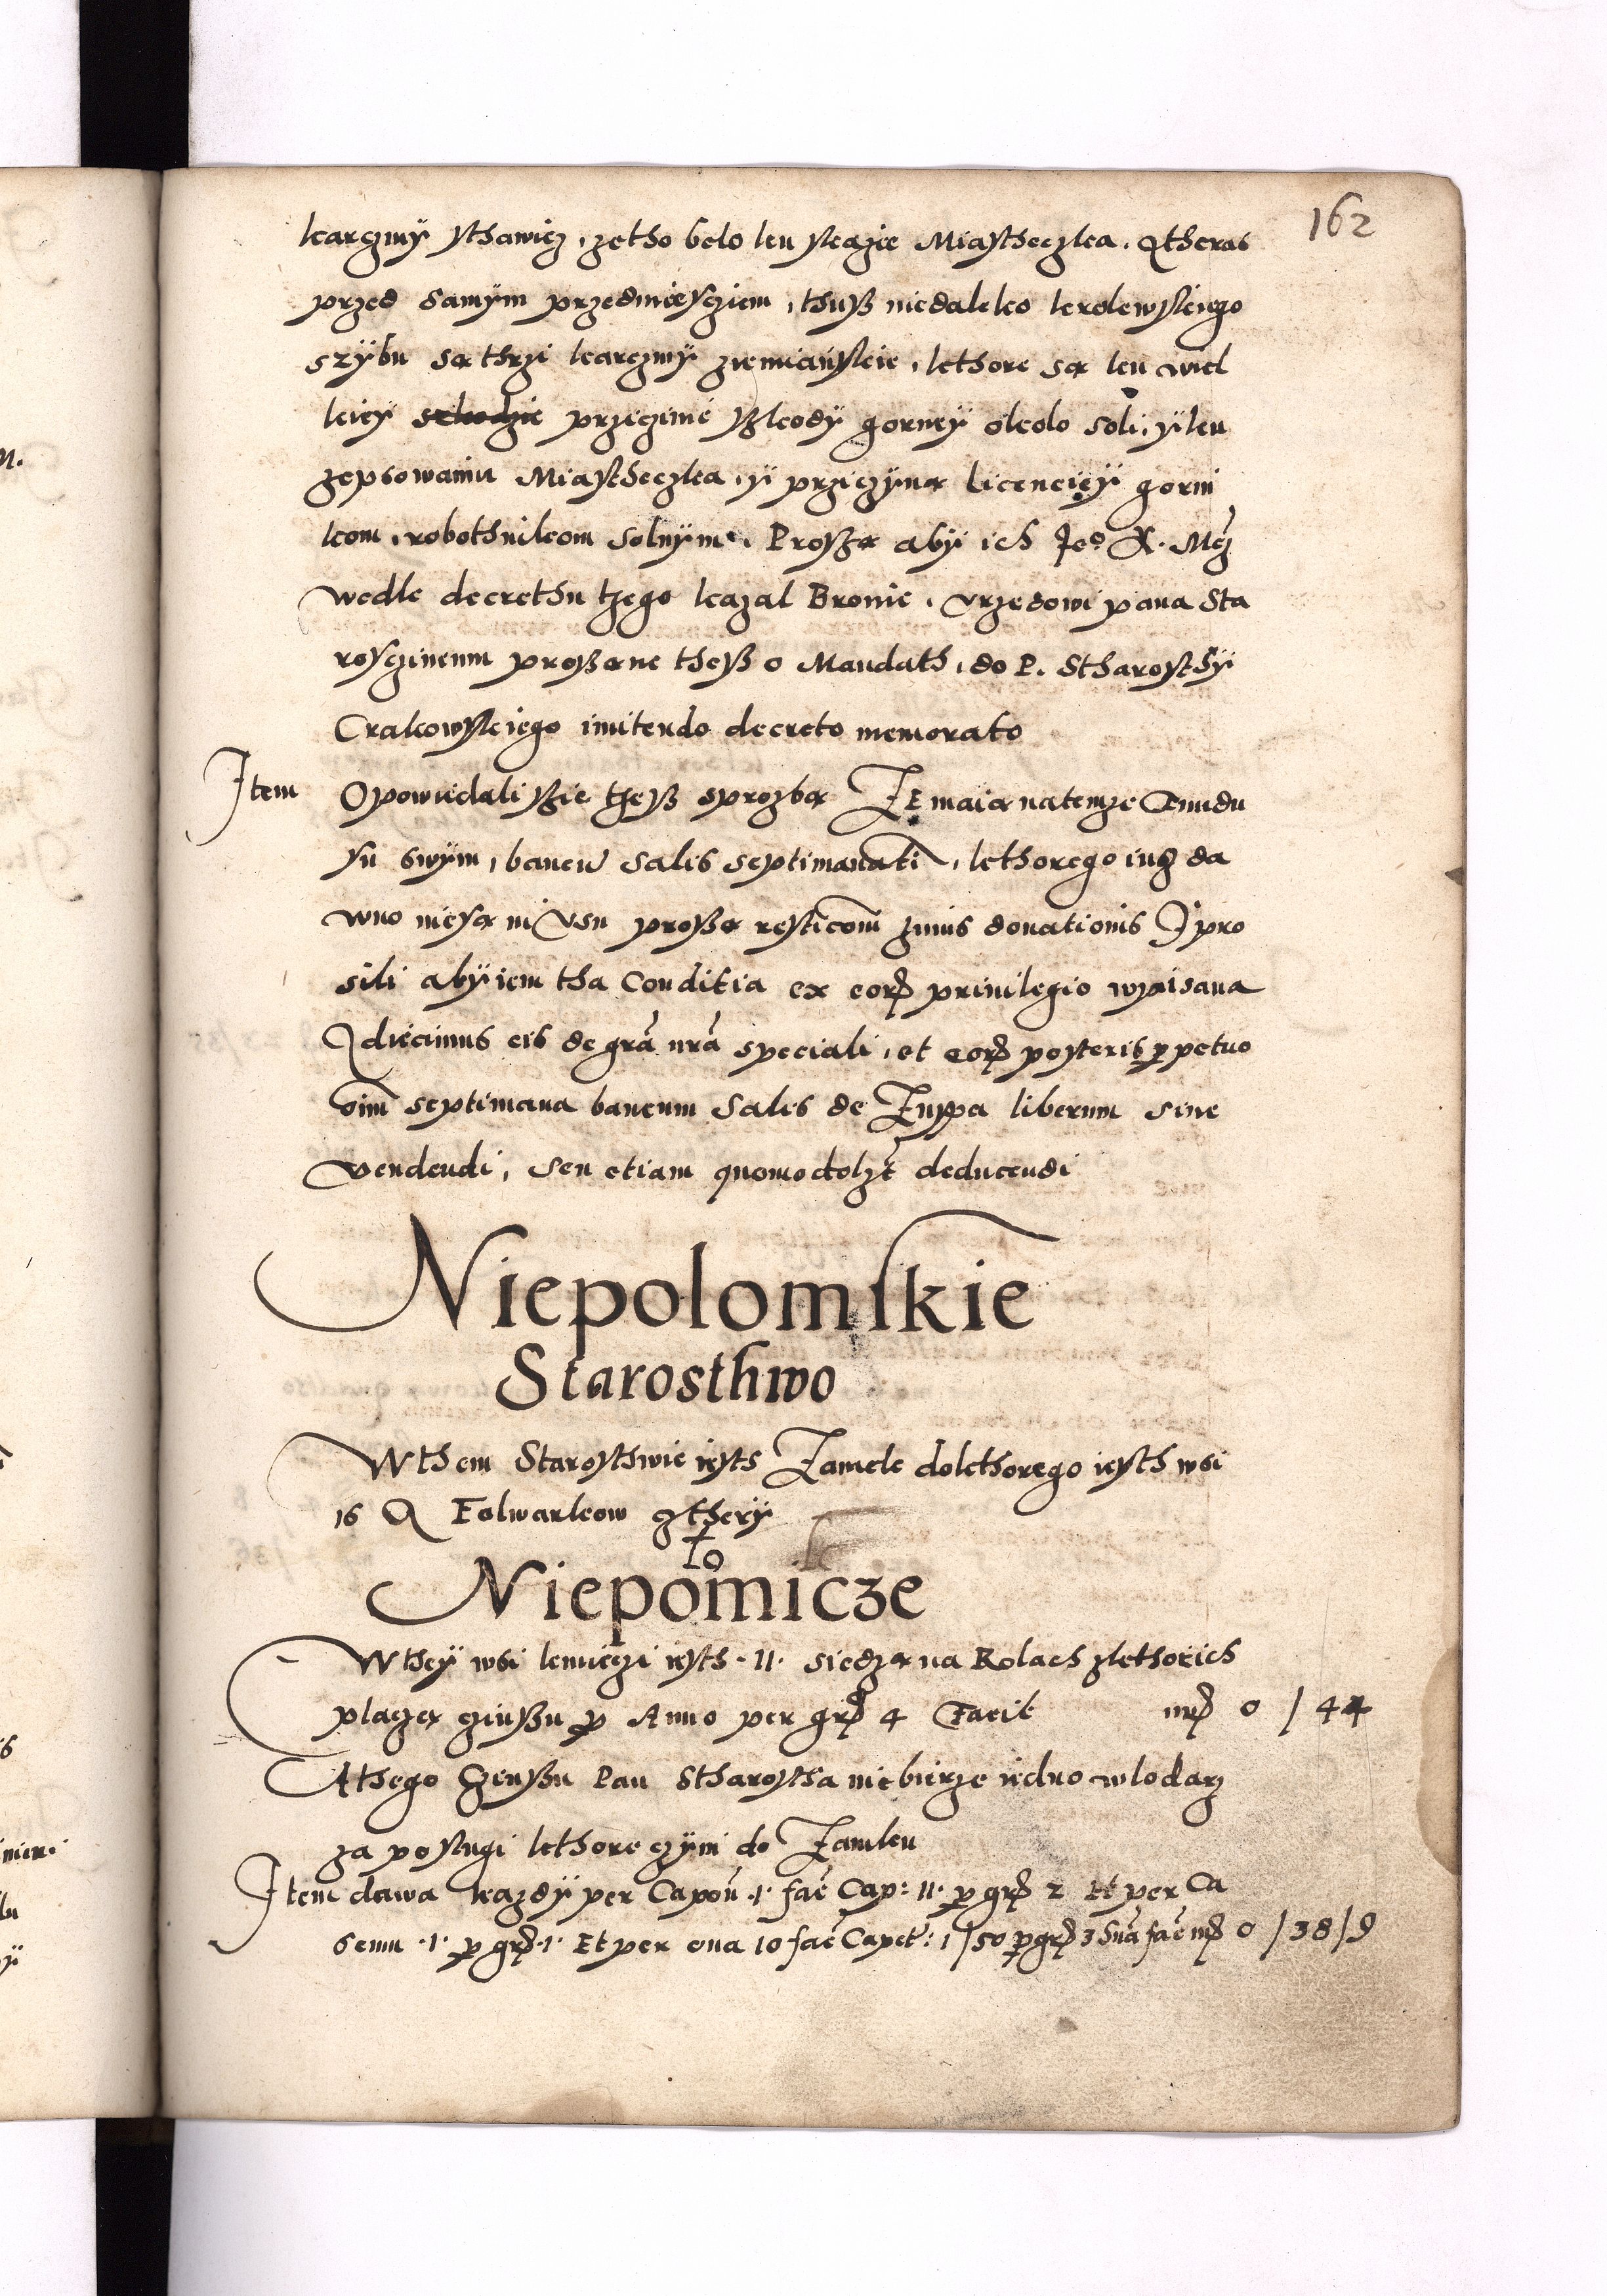 162
karczmÿ sthawicz, zetho belo ku skazie Miastheczka. A theras
przed samÿm przedmiesciem, thuß niedaleko krolewskiego
szÿbu są thrzi karczmÿ ziemianskie, kthore są ku wiel
kieÿ szkodzie przeczinie ßkodÿ gorneÿ okolo soli, ÿ ku
zepsowaniu Miastheczka, ÿ prziczÿną licencieÿ gorni
kom, robothnikom solnÿm. Proßą abÿ ich Je⁰ K. Mcz
wedle decrethu tzego kazal Bronic. Vrzedowi pana Sta
rosczinemu proßąc theß o Mandath, do P. Stharosthÿ
Crakowskiego innitendo decreto memorato
Item Opowiedali ßie tzeß sprozbą Ze maią natemze Fundu
su swÿm, bancū salis septimanatī, kthorego iuz da
wno niesą ni Vsu proßą restitōm hmōi donationis Jpro
sili abÿ iem tha Conditia ex eorꝝ privilegio wpisana
Adiicimus eis de grā nrā speciali, et eorꝝ posteris ꝑpetuo
oīm septimana bancum Salis de Zuppa liberum sive
vendendi, seu etiam quomodolzt deducendi
Niepolomskie
Starosthwo
Wthem Starosthwie iesth Zamek dokthorego iesth wsi
16 A Folwarkow cztherÿ
lo
Niepomicze
Wtheÿ wsi kmieczi iesth ·11· siedzą na Rolach zkthorich
placzą czinßu ꝑ Anno per grꝭ 4 Facit mrꝭ 0 / 44
Athego Czenßu Pan Stharostha nie bierze iedno wlodarz
za poslugi kthore czÿni do Zamku
Item dawa kazdÿ per Capoū ·1· faē Cap: 11· ꝑ grꝭ 2 Et per Ca
seum ·1· ꝑ grꝭ ·1· Et per ova 10 faē Capet: 1/50 ꝑ grꝭ 3 Suā faē mrꝭ 0 / 38 / 9